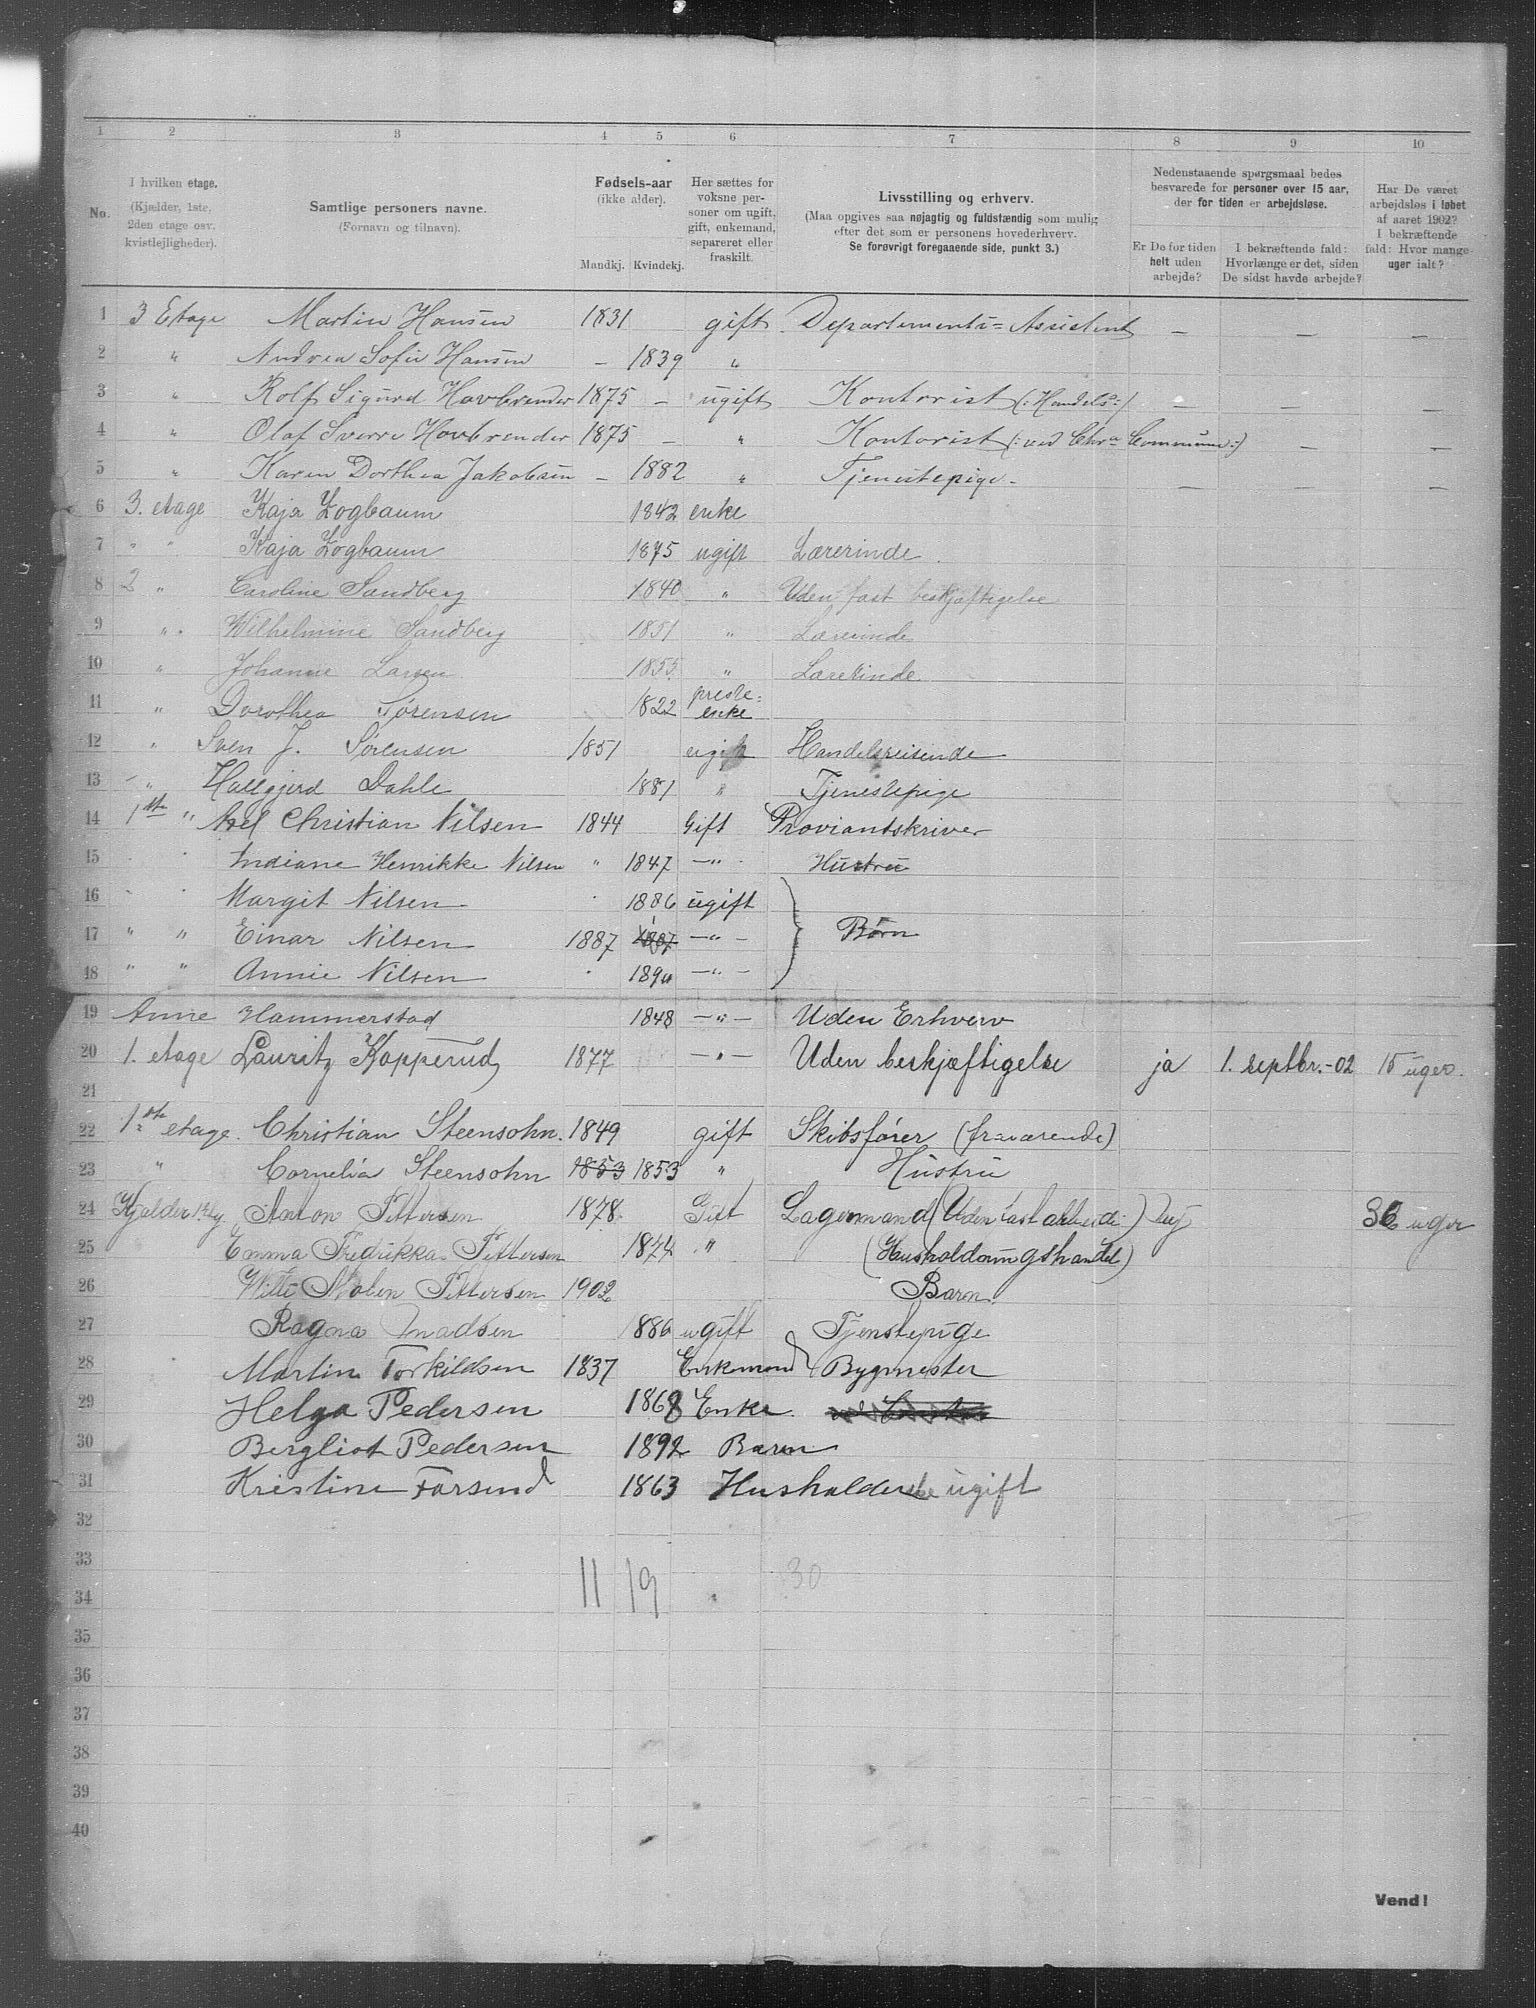 1 2 3 4 5 6 7 8 9 10
No.
I hvilken etage.
(Kjælder, 1ste,
2den etage osv.
kvistlejligheder).
Samtlige personers navne.
(Fornavn og tilnavn).
Fødsels-aar
(ikke alder).
Mandkj. Kvindekj.
Her sættes for
voksne per-
soner om ugift,
gift, enkemand,
separeret eller
fraskilt.
Livsstilling og erhverv.
(Maa opgives saa nøjagtig og fuldstændig som mulig
efter det som er personens hovederhverv.
Se forøvrigt foregaaende side, punkt 3.)
Nedenstaaende spørgsmaal bedes
besvarede for personer over 15 aar,
der for tiden er arbejdsløse.
Er De for tiden
helt uden
arbejde?
I bekræftende fald:
Hvorlænge er det, siden
De sidst havde arbejde?
Har De været
arbejdsløs i løbet
af aaret 1902?
I bekræftende
fald: Hvor mange
uger ialt?
1 3 Etage Martin Hansen 1831 gift Departements=Assistent — — —
2 " Andrea Sofie Hansen — 1839 "
3 " Rolf Sigurd Havbrender 1875 — ugift Kontorist (: Handels :) — — —
4 " Olaf Sverre Havbrender 1875 — " Kontorist (: ved Chra Commune :) — —
5 " Karen Dorthea Jakobsen — 1882 " Tjenestepige — — — —
6 3. etage Kaja Zogbaum 1842 enke
7 " " Kaja Zogbaum 1875 ugift Lærerinde
8 2 " Caroline Sandberg 1840 " Uden fast beskjæftigelse
9 " Wilhelmine Sandberg 1851 " Lærerinde
10 " Johanne Larsen 1855 " Lærerinde
11 " Dorothea Sørensen 1822 preste=
enke
12 " Sven J. Sørensen 1851 ugift Handelsreisende
13 " Hallgjerd Dahle 1881 " Tjenestepige
14 1ste " Axel Christian Nilsen 1844 Gift Proviantskriver
15 Indiane Henrikke Nilsen " 1847 —"— Hustru
16 Margit Nilsen 1886 ugift
17 " " Einar Nilsen 1887 1887 —"— Børn
18 " " Annie Nilsen 1890 —"—
19 Anne Hammerstad 1848 —"— Uden Erhverv
20 1. etage Lauritz Kopperud 1877 —"— Uden beskjæftigelse ja 1. septbr.-02 15 uger.
21
22 1ste etage. Christian Steensohn. 1849 gift Skibsfører (fraværende)
23 " Cornelia Steensohn 1853 1853 " Hustru
24 Kjælder Anton Pettersen 1878 Gift Lagermand (Uden fast arbeide) Nej 36 uger
25 Emma Fredrikka Pettersen 1874 " (Husholdningshandel)
26 Pettersen 1902 Barn.
27 Ragna Madsen 1886 ugift Tjenstepige
28 Martin Torkildsen 1837 Enkemand Bygmester
29 Helga Pedersen 1868 Enke.
30 Bergliot Pedersen 1892 Barn
31 Kristine Forsund 1863 Husholderske ugift
32
33
34 11 19 30
35
36
37
38
39
40
Vend!